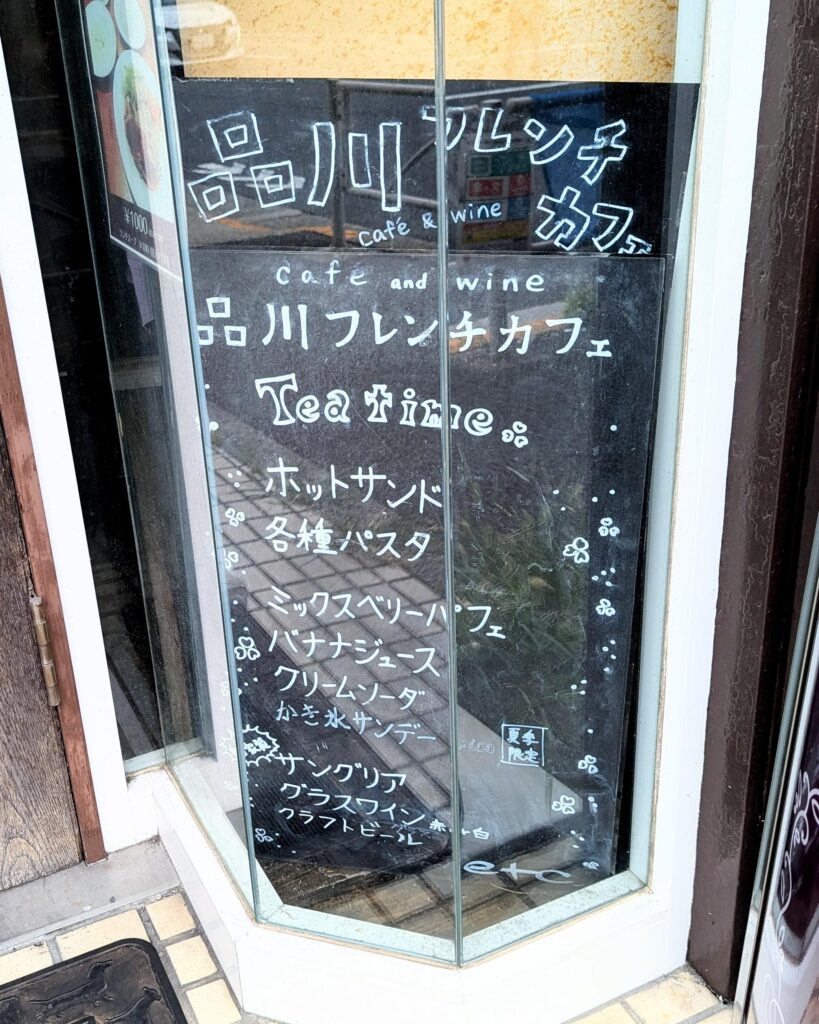 品川フレンチ
カフェ
café & wine
cafe and wine
品川フレンチカフェ
Tea time
ホットサンド
各種パスタ
ミックスベリーパフェ
バナナジュース
クリームソーダ
かき氷サンデー
夏季
限定
サングリア
グラスワイン 赤・白
クラフトビール
etc
¥1000